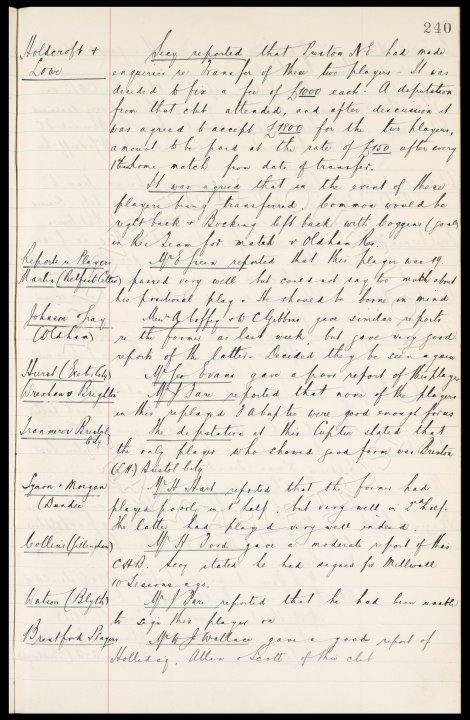 240
Holdcroft +
Lowe
Secy reported that Preston N.E had made
enquiries re Transfer of these two players - It was
decided to fix a fee of £1000 each. A deputation
from that club attended, and after discussion it
was agreed to accept £1800 for the two players,
amount to be paid at the rate of £150 after every
home match from date of transfer.
It was agreed that in the event of these
players being transferred, Common would be
right back + Bocking left back with Coggins (goal)
in the team for match v Oldham Res.
Reports re Players
Martin (Hetford Cttee)
Mr E Green reported that this player was 19.
passed very well but could not say too much about
his positional play. + He should be borne in mind
Johnson + Gay
(Oldham)
Mess A Coffey + W C Gibbins gave similar reports
re the former as last week but gave very good
reports of the latter. Decided they be seen again
Hurst (Exe City)
Mr Geo Evans gave a poor report of this player
Wrexham v Brighton
Mr J Fare reported that none of the players
in this replayed were good enough for us
Tranmere v Bristol
City
The deputation at this Cuptie stated that
the only player who showed good form was Brinton
(L.H.) Bristol City
Symon + Morgan
(Dundee)
Mr H Hart reported that the former had
played poorly in 1st half, but very well in 2nd half.
The latter had played very well indeed.
Collins (Gillingham)
Mr H gave a moderate report of this
C.H.B. Secy stated he had signed for Millwall
10 Sessions ago.
Watson (Blyth)
Mr J Fare reported that he had been unable
to sign this player on
Brentford Players
Mr W J Wallace gave a good report of
Holliday, Allen + Scott of this club